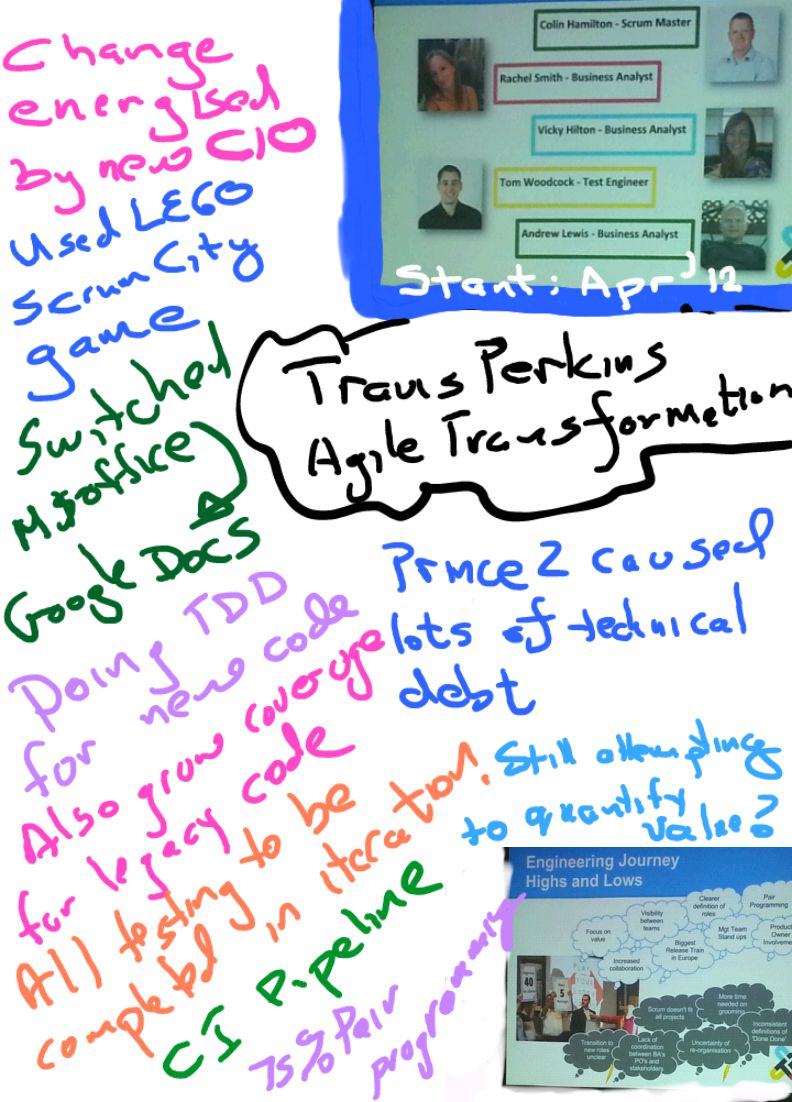 Change
energised
by new CIO
Used LEGO
Scrum City
game
Switched
MS office
Google Docs
Colin Hamilton - Scrum Master
Rachel Smith - Business Analyst
Vicky Hilton - Business Analyst
Tom Woodcock - Test Engineer
Andrew Lewis - Business Analyst
Start: Apr '12
Travis Perkins
Agile Transformation
Prince 2 caused
lots of technical
debt
Doing TDD
for new code
Also grow coverage
for legacy code
All testing to be
completed in iteration.
Still attempting
to quantify
value?
CI Pipeline
75% Pair
programming
Engineering Journey
Highs and Lows
Focus on
value
Visibility
between
teams
Clearer
definition of
roles
Pair
Programming
Increased
collaboration
Biggest
Release Train
in Europe
Mgt Team
Stand ups
Product
Owner
Involveme
40
5
Scrum doesn't fit
all projects
More time
needed on
grooming
Transition to
new roles
unclear
Lack of
coordination
between BA's
PO's and
stakeholders
Uncertainty of
re-organisation
Inconsistent
definitions of
'Done Done'